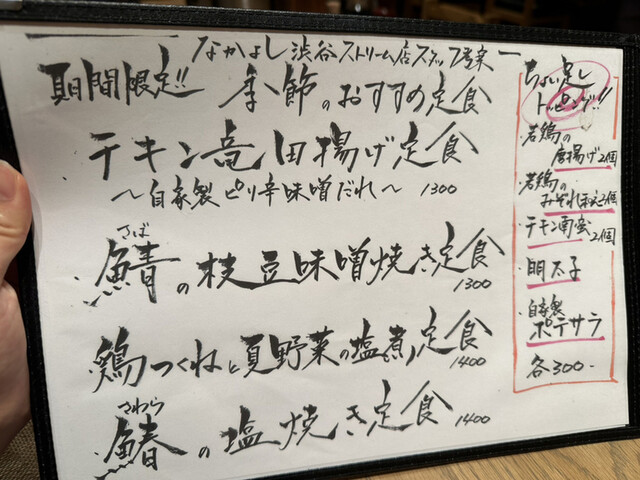 なかよし渋谷ストリーム店スタッフ考案
期間限定!! 季節のおすすめ定食
チキン竜田揚げ定食
〜自家製ピリ辛味噌だれ〜 1300
さば
鯖の枝豆味噌焼き定食
1300
鶏つくねと夏野菜の塩煮定食
1400
さわら
鰆の塩焼き定食 1400
ちょい足し
トッピング!!
・若鶏の
唐揚げ2個
・若鶏の
みぞれ和え2個
・チキン南蛮
2個
・明太子
・自家製
ポテサラ
各300-